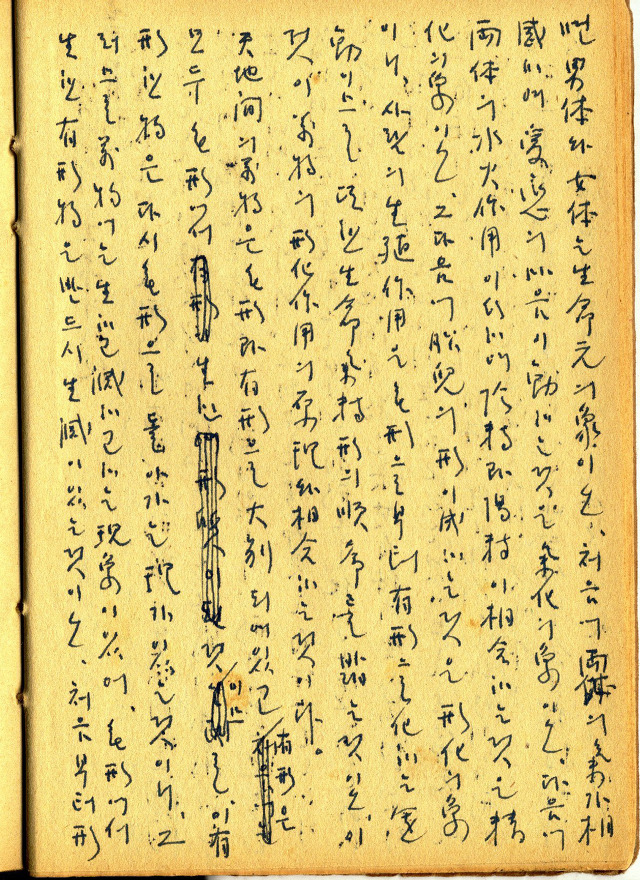 면 男体와 女体는 生命元의 象이오, 처음에 両体의 氣가 相
感하매 愛戀의 마음이 動하는것은 氣化의 象이오, 다음에
両体의 水火作用이 되매 陰精과 陽精이 相合하는것은 精
化의 象이오, 그 다음에 胎兒의 形이 成하는것은 形化의 象
이니, 사람의 生殖作用은 無形으로부터 有形으로 化하는 運
動이므로, 또한 生命氣精形의 順序를 밟는것이오, 이
것이 萬物의 形化作用의 原理와 相合하는것이다.
天地間의 萬物은 無形과 有形으로 大別되어있고, 有形은
모두 無形에서 生한 것이므로 이 有
形한 物은 다시 無形으로 돌아가는 理가 있는것이니, 그
러므로 萬物에는 生하고 滅하고하는 現象이 있어, 無形에서
生한 有形物은 반드시 生滅이 있는것이오, 처음부터 形